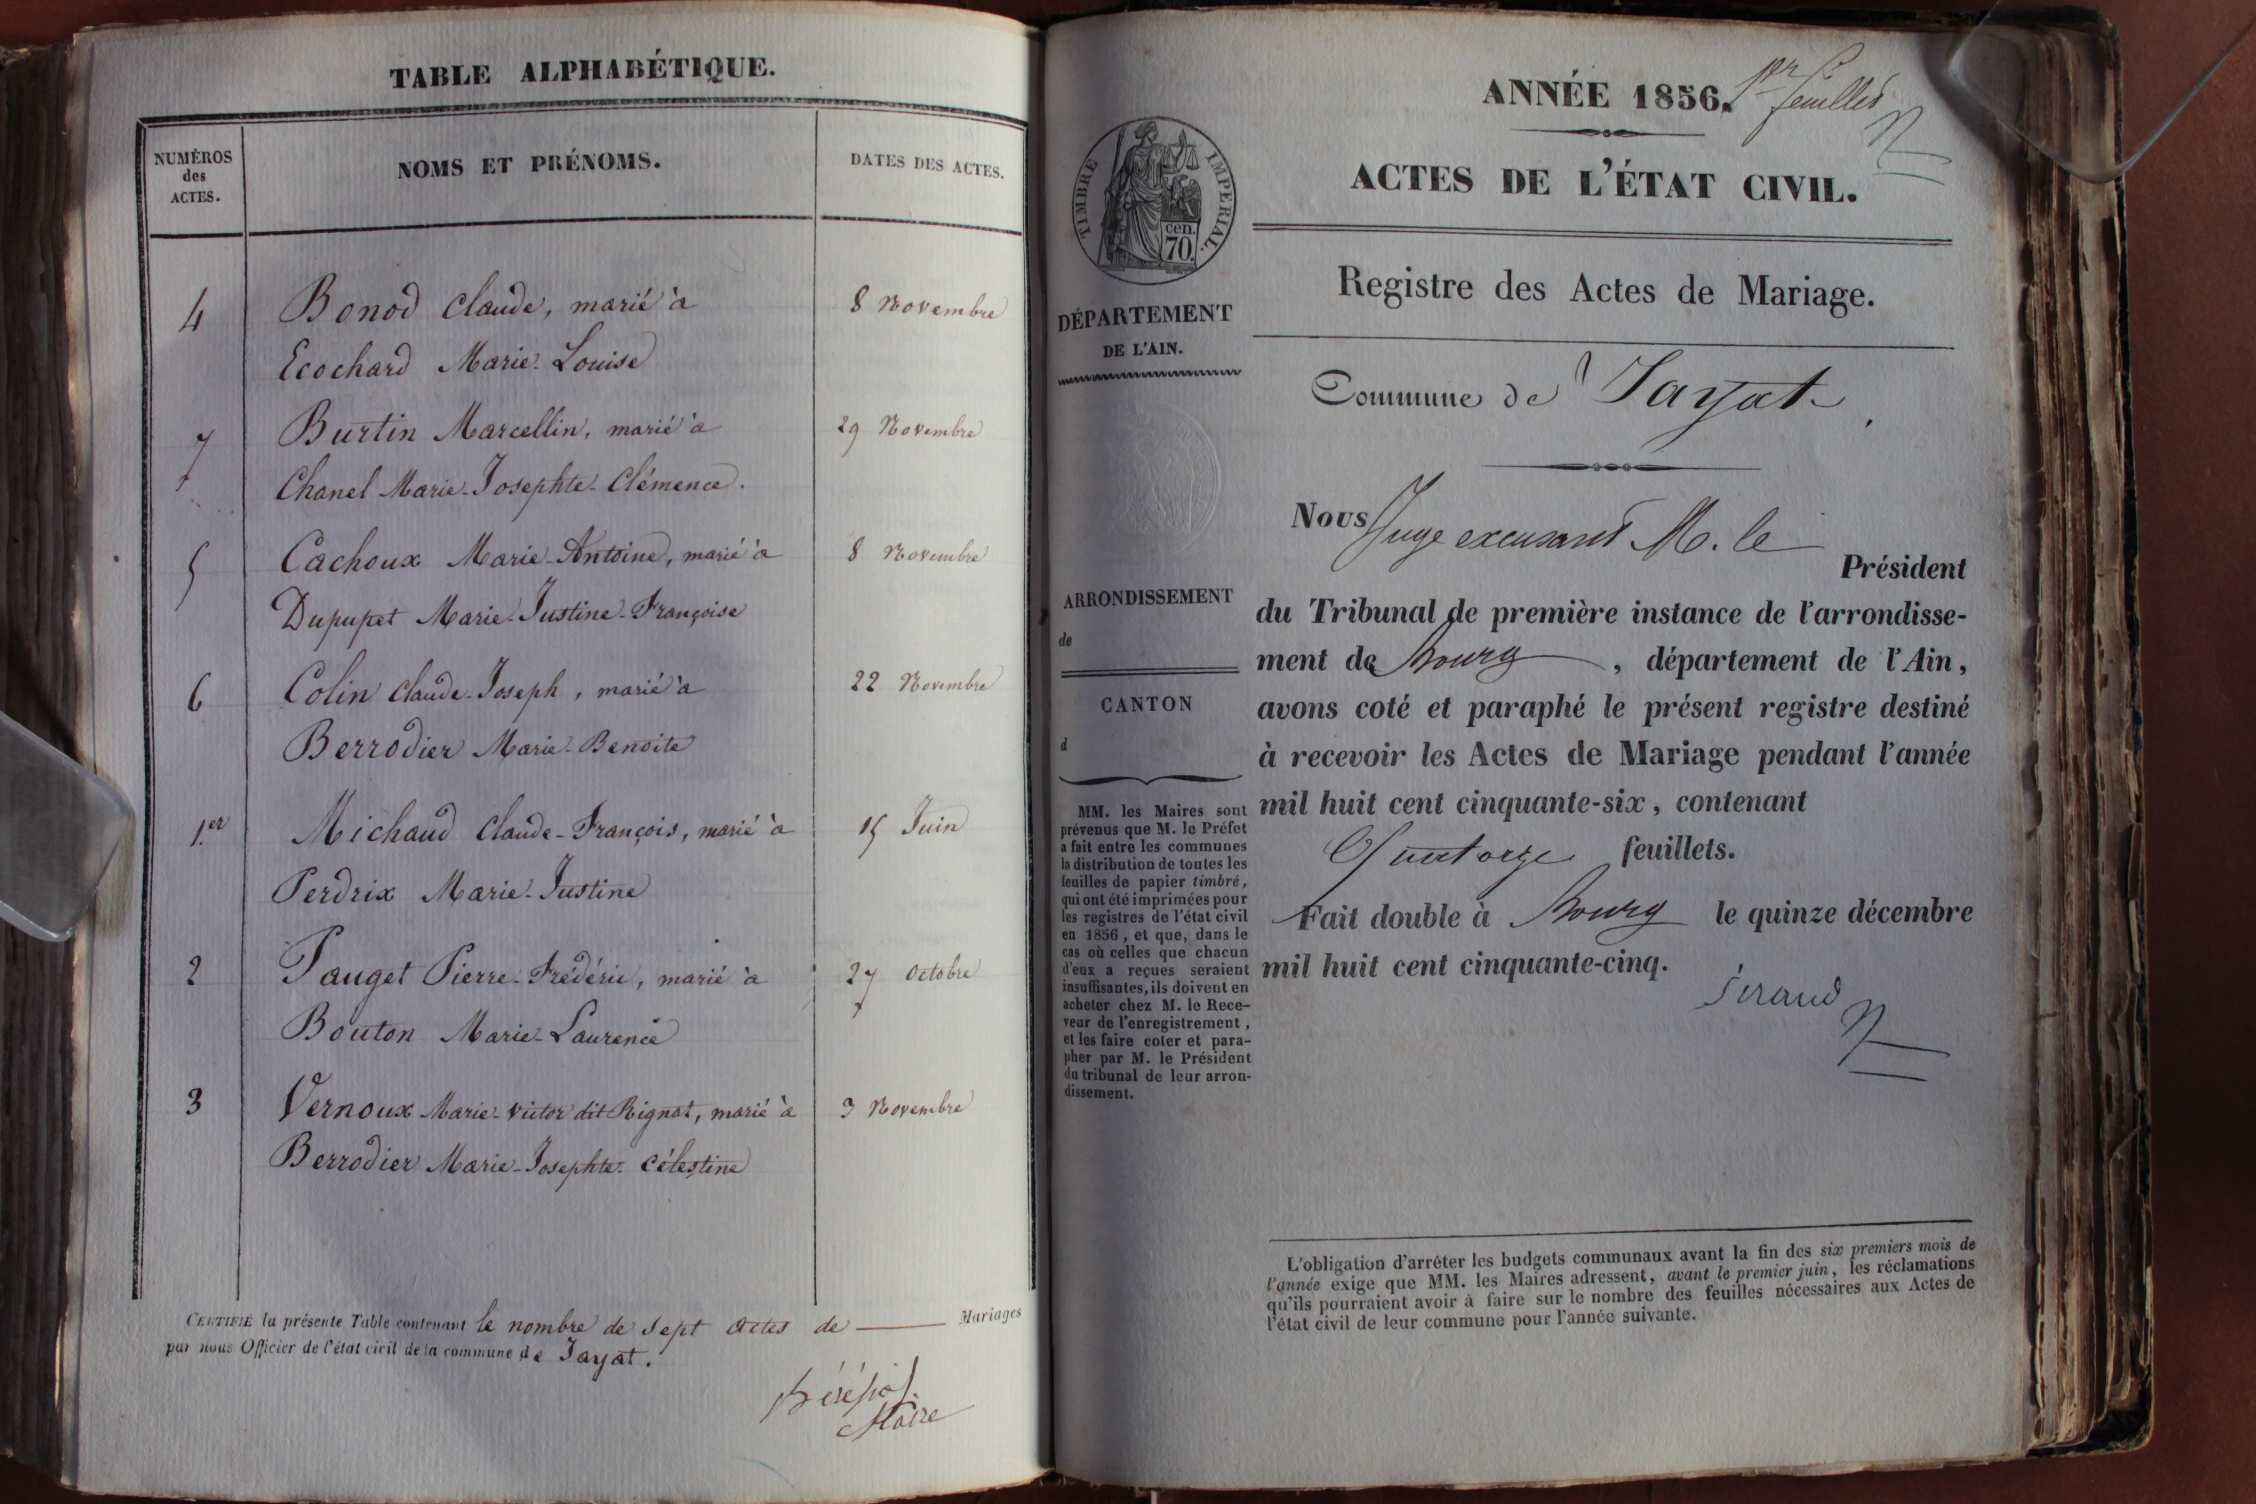 TABLE ALPHABÉTIQUE.
NUMÉROS des ACTES.
NOMS ET PRÉNOMS.
DATES DES ACTES.
4 Bonod Claude, marié à 8 Novembre
Ecochard Marie-Louise
7 Burtin Marcellin, marié à 29 Novembre
Chanel Marie-Josephte-Clémence.
5 Cachoux Marie-Antoine, marié à 8 Novembre
Dupupet Marie-Justine-Françoise
6 Colin Claude-Joseph, marié à 22 Novembre
Berrodier Marie-Benoite
1.er Michaud Claude-François, marié à 15 Juin
Perdrix Marie-Justine
2 Pauget Pierre-Frédéric, marié à 27 Octobre
Bouton Marie-Laurence
3 Vernoux Marie-Victor dit Rignat, marié à 3 Novembre
Berrodier Marie-Josephte-Célestine
CERTIFIÉ la présente Table contenant le nombre de sept actes de Mariages
par nous Officier de l'état civil de la commune de Jayat.
Maire
ANNÉE 1856.
1er feuillet
ACTES DE L'ÉTAT CIVIL.
TIMBRE IMPÉRIAL.
cen. 70.
Registre des Actes de Mariage.
DÉPARTEMENT
DE L'AIN.
Commune de Jayat
ARRONDISSEMENT
de
CANTON
d
MM. les Maires sont
prévenus que M. le Préfet
a fait entre les communes
la distribution de toutes les
feuilles de papier timbré,
qui ont été imprimées pour
les registres de l'état civil
en 1856, et que, dans le
cas où celles que chacun
d'eux a reçues seraient
insuffisantes, ils doivent en
acheter chez M. le Rece-
veur de l'enregistrement,
et les faire coter et para-
pher par M. le Président
du tribunal de leur arron-
dissement.
Nous Juge excusant M. le
Président
du Tribunal de première instance de l'arrondisse-
ment de Bourg, département de l'Ain,
avons coté et paraphé le présent registre destiné
à recevoir les Actes de Mariage pendant l'année
mil huit cent cinquante-six, contenant
Quatorze feuillets.
Fait double à Bourg le quinze décembre
mil huit cent cinquante-cinq.
L'obligation d'arrêter les budgets communaux avant la fin des six premiers mois de
l'année exige que MM. les Maires adressent, avant le premier juin, les réclamations
qu'ils pourraient avoir à faire sur le nombre des feuilles nécessaires aux Actes de
l'état civil de leur commune pour l'année suivante.